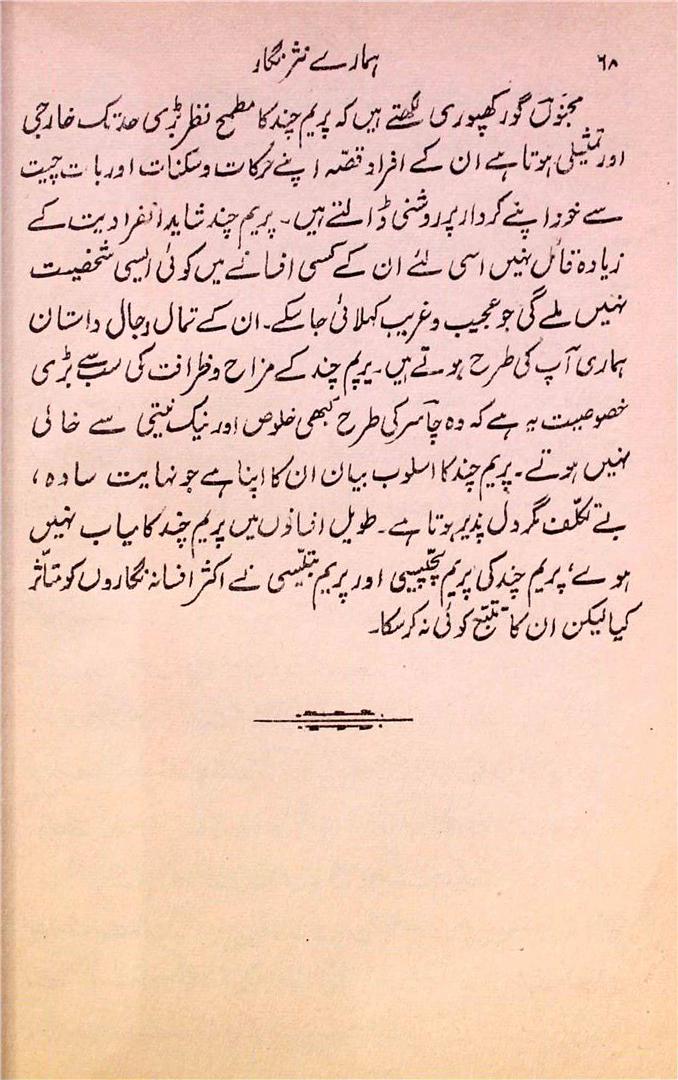 ۶۸ ہمارے نثر نگار
مجنوں گورکھپوری لکھتے ہیں کہ پریم چند کا مطمح نظر بڑی حد تک خارجی
اور تمثیلی ہوتا ہے ان کے افراد قصّہ اپنے حرکات و سکنات اور بات چیت
سے خود اپنے کردار پر روشنی ڈالتے ہیں۔ پریم چند شاید انفرادیت کے
زیادہ قائل نہیں اسی لئے ان کے کسی افسانے میں کوئی ایسی شخصیت
نہیں ملے گی جو عجیب و غریب کہلائی جا سکے۔ ان کے تمال رجال داستان
ہماری آپ کی طرح ہوتے ہیں۔ پریم چند کے مزاح و ظرافت کی سب سے بڑی
خصوصیت یہ ہے کہ وہ چاسر کی طرح کبھی خلوص اور نیک نیتی سے خالی
نہیں ہوتے۔ پریم چند کا اسلوب بیان ان کا اپنا ہے جو نہایت سادہ،
بے تکلّف مگر دل پذیر ہوتا ہے۔ طویل افسانوں میں پریم چند کامیاب نہیں
ہوے، پریم چند کی پریم پچّیسی اور پریم بتّیسی نے اکثر افسانہ نگاروں کو متاثّر
کیا لیکن ان کا تتبّع کوئی نہ کر سکا۔